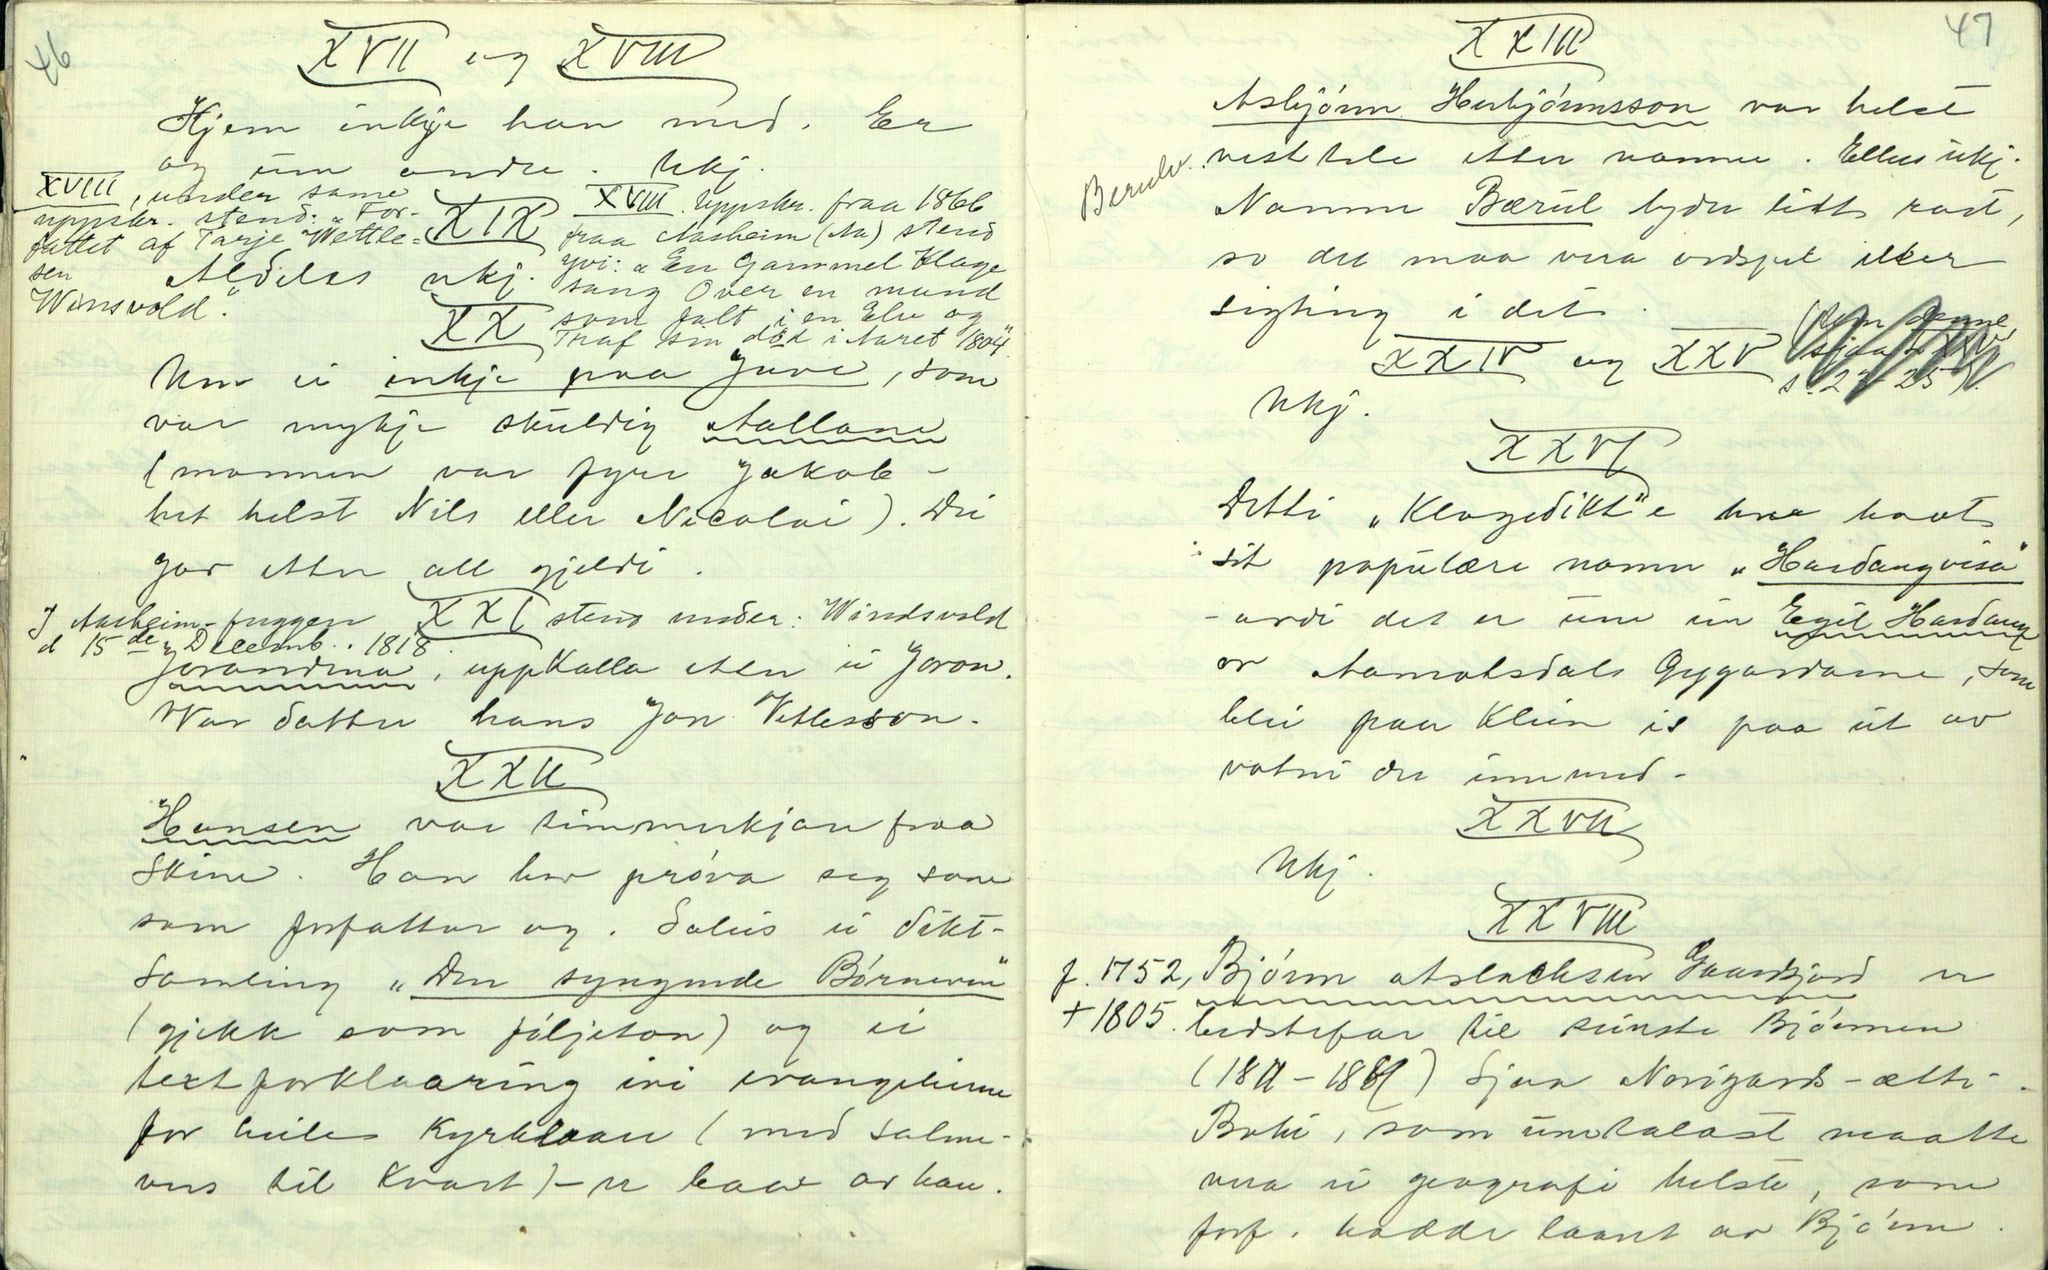 46
XVII og XVIII
Hjem inkje han med. Er
og um andre. Ukj.
XVIII, under same
uppskr. stend: „For-
fattet af Tarje Wettle-
sen
Winsvold."
XVIII. Uppskr. fraa 1866
fraa Aasheim (Aa) stend
yvi: „En Gammel Klage
sang Over en mand
som falt i en Elv og
Traf sin död i Aaret 1804"
XIX
Aldeles ukj.
XX
Um ei inkje paa Juve, som
var mykje skuldig Aallane
(mannen var fyrr Jakob -
het helst Nils eller Nicolai). Dei
gav etter all gjeldi.
I Aasheim-fuggen XXI stend under: Windsvold
d 15de Decemb. 1818.
Jorandina, uppkalla etter ei Joron.
War dotter hans Jon Vetlesson.
XXII
Hansen var timmerkjar fraa
Skine. Han har pröva seg som
som forfattar og. Soleis ei dikt-
samling „Den syngende Börneven"
(gjekk som följeton) og ei
textforklaaring ivi evangeliene
for heile Kyrkjeaaret (med salme-
vers til kvart) - er laav av han.
47
XXIII
Asbjönn Herbjönnsson var helst
vesthele etter namne. Elles ukj.
Berulv.
Namne Bærul lyder litt rart,
so det maa vera ordspel eller
sigting i det.
XXIV og XXV
s. 23-25).
Ukj.
XXVI
Detti „Klagedikt"e hve havt
sit populære namn „Hardangvisa"
- avdi det er um ein Egil Hardang
av Aamotsdals Gygardane, som
blei paa Klein is paa ut av
vatni der innmed -
XXVII
Ukj.
XXVIII
f. 1752, Björn Aslachsen Gaardsjord er
+ 1805. bedstefar til seinste Björnen
(1811 - 1881) Sjaa Norigards-ætti -
Boki, som umtalast maatte
vera ei geografi helste, som
forf. hadde laant av Björn.